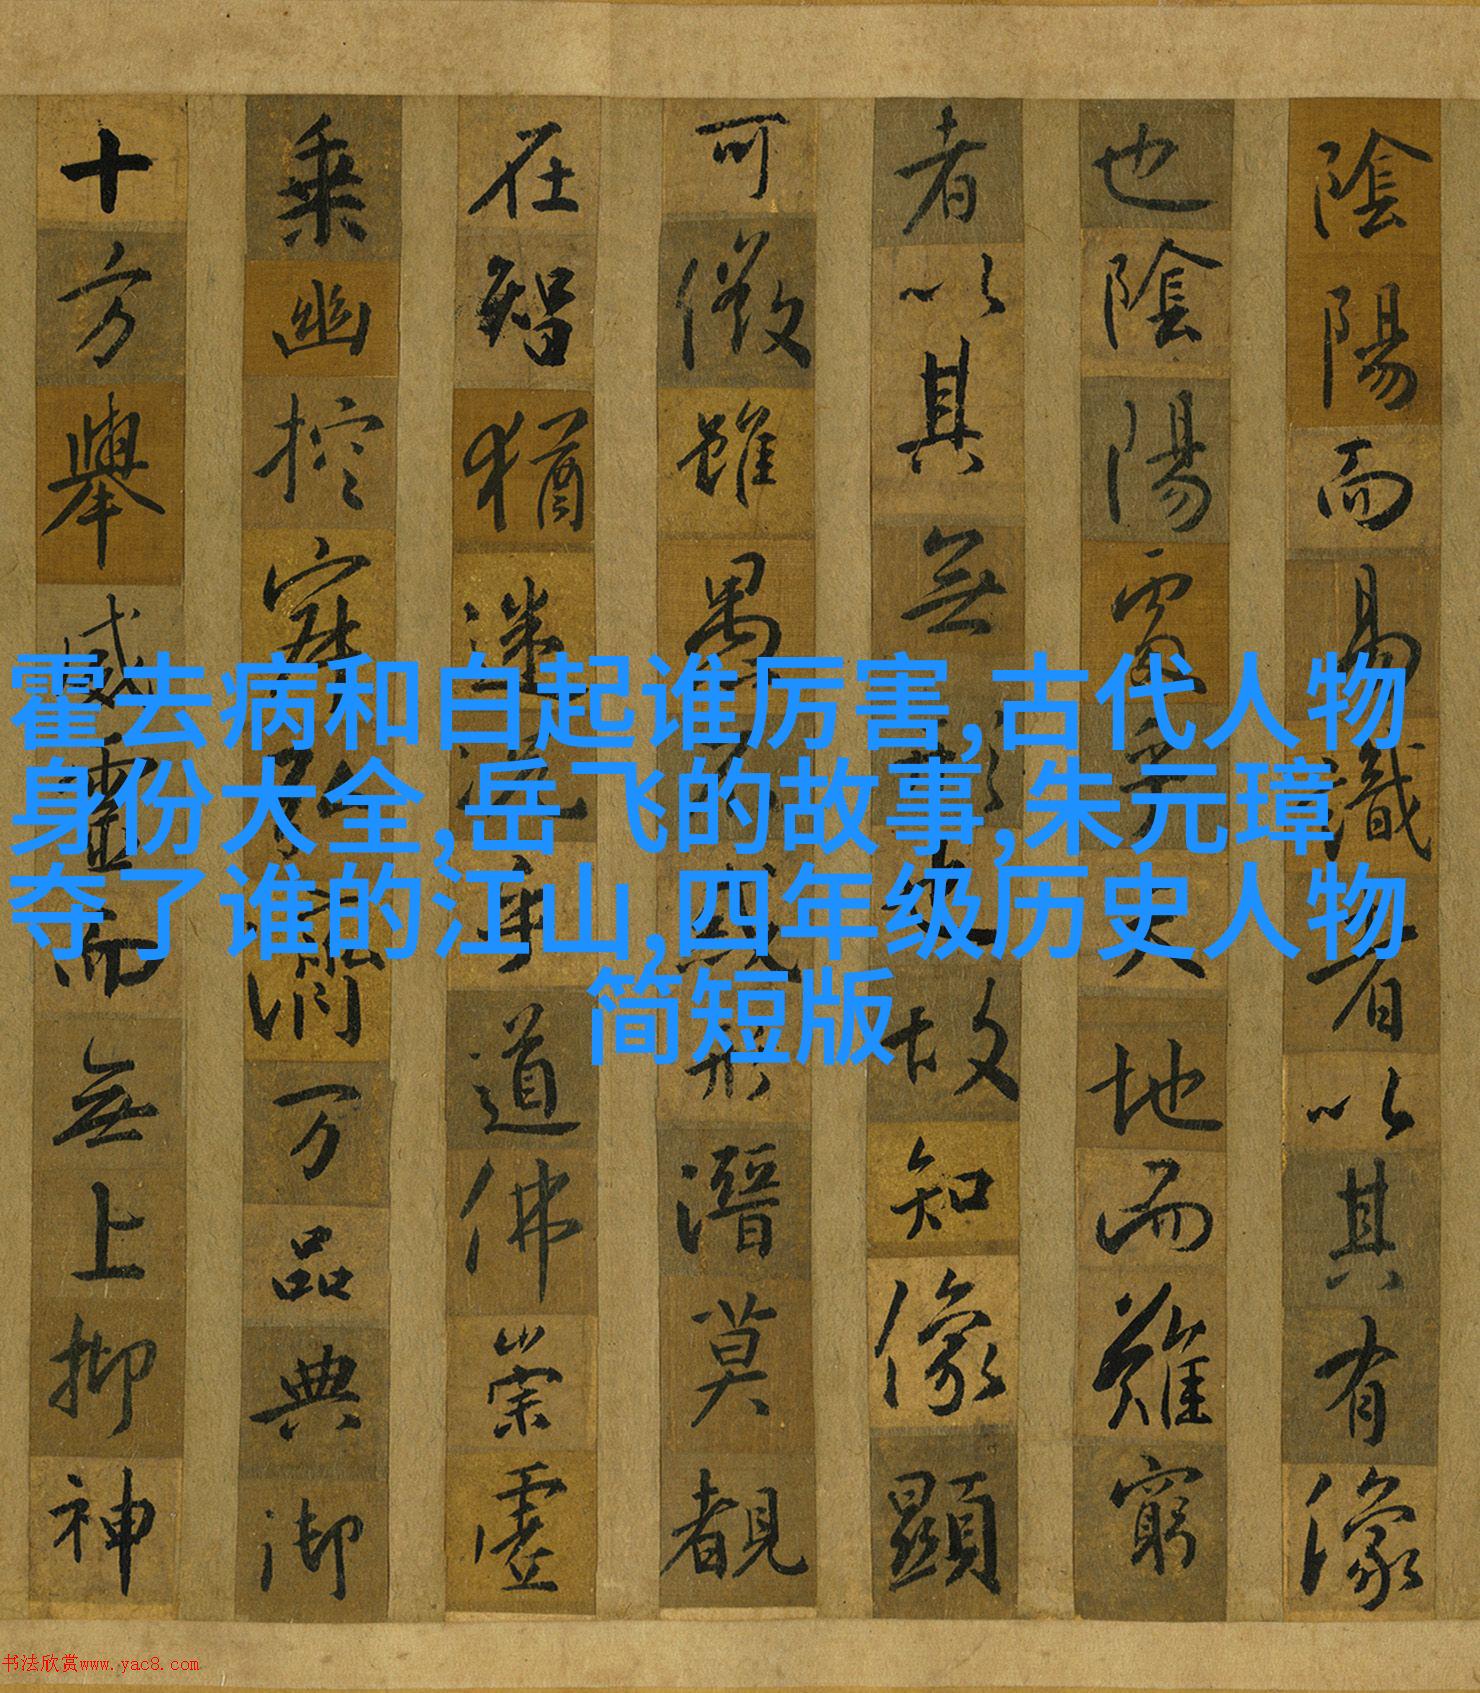 陰陽而易識者以其有像
也陰陽處乎天地而難窮
者以其無形也故知像顯
可徵雖愚不惑形潛莫覩
在智猶迷況乎道佛崇虛
乗幽控寂弘濟万品典御
十方舉威靈而無上抑神
霍去病和白起谁厉害,古代人物
身份大全,岳飞的故事,朱元璋
夺了谁的江山,四年级历史人物
简短版
书法欣赏www.yac8.com